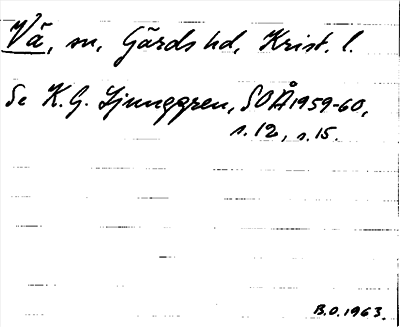 Vä, sn, Gärds hd, Krist. l.
Se K.G. Ljunggren, SOÅ 1959-60,
s.12, s.15.
B.O.1963.